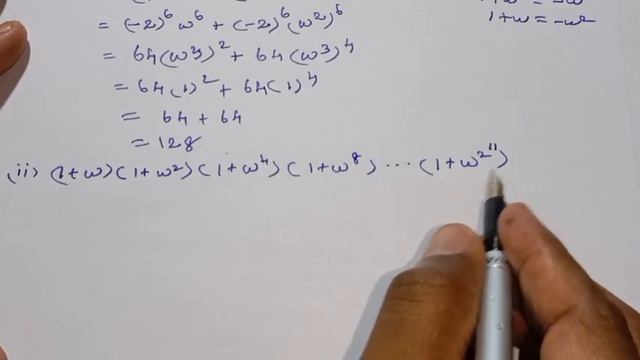 = (-2)⁶ ω⁶ + (-2)⁶ (ω²)⁶
1+ω = -ω²
= 64 (ω³)² + 64 (ω³)⁴
= 64 (1)² + 64 (1)⁴
= 64 + 64
= 128
(ii) (1+ω) (1+ω²) (1+ω⁴) (1+ω⁸) ... (1+ω^2^11)